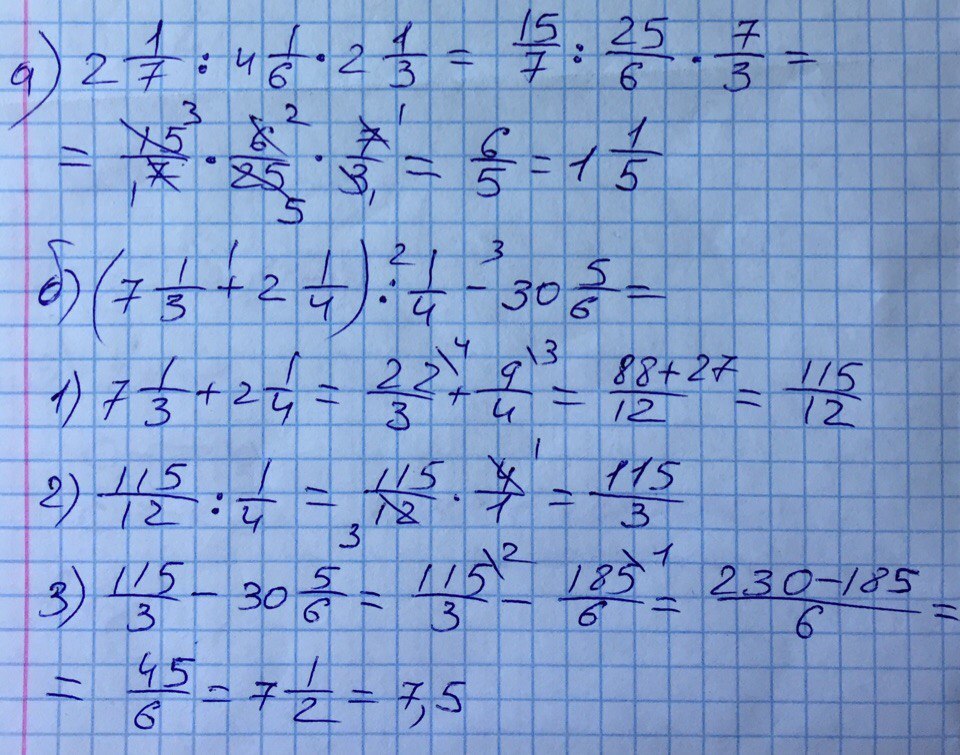 а) 2 1/7 : 4 1/6 · 2 1/3 = 15/7 : 25/6 · 7/3 =
= 15/7 · 6/25 · 7/3 = 6/5 = 1 1/5 3 2 1 1 5 1
б) (7 1/3 + 2 1/4) : 1/4 - 30 5/6 = 1 2 3
1) 7 1/3 + 2 1/4 = 22/3 \4 + 9/4 \3 = 88+27/12 = 115/12
2) 115/12 : 1/4 = 115/12 · 4/1 = 115/3 3 1
3) 115/3 - 30 5/6 = 115/3 \2 - 185/6 \1 = 230-185/6 =
= 45/6 = 7 1/2 = 7,5